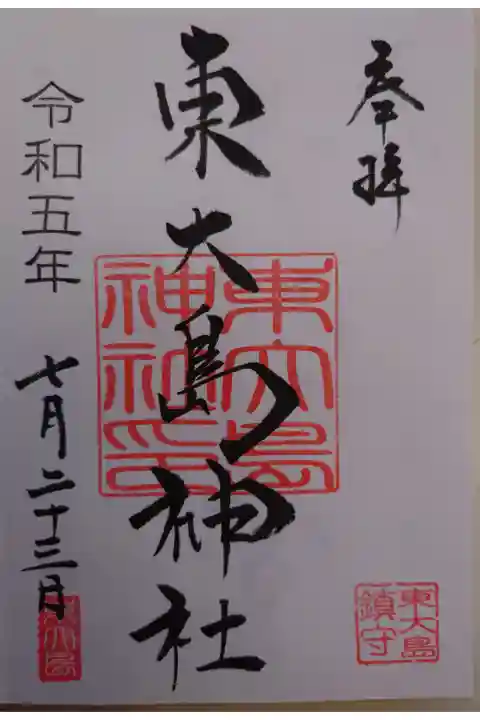 奉拝
東大島神社
東大島神社印
東大島鎮守
令和五年
七月二十三日
東大島